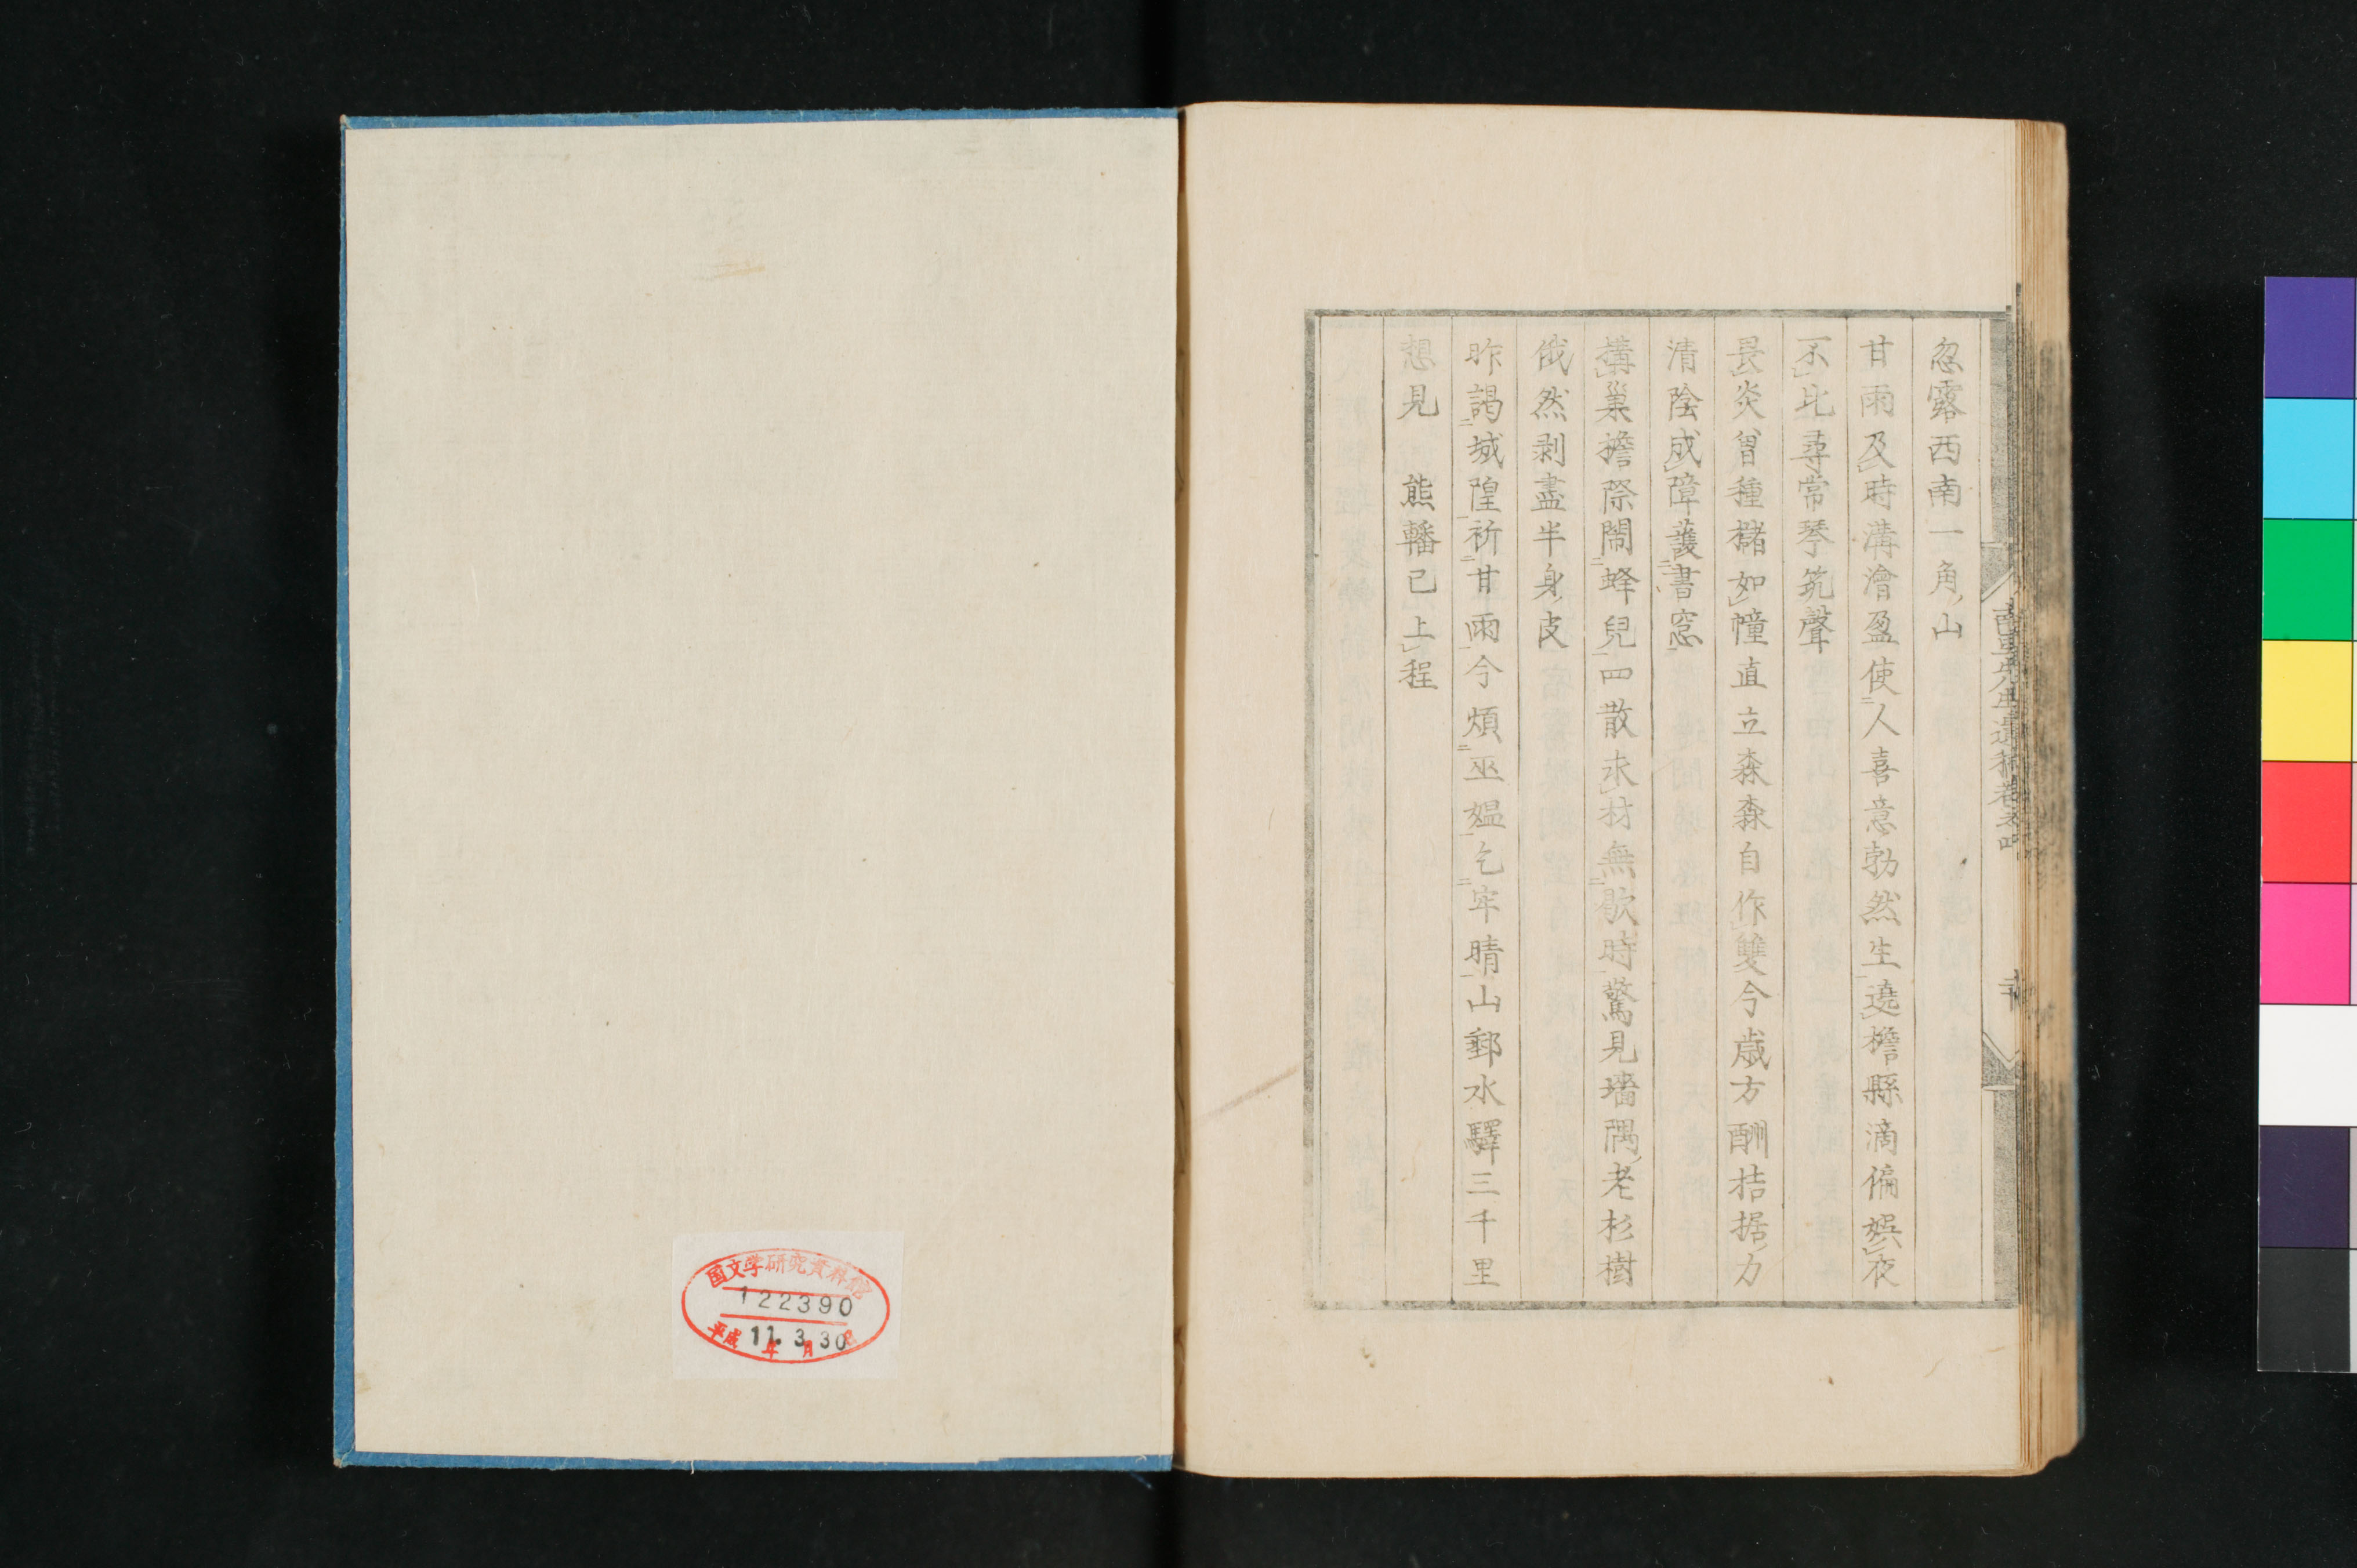 忽露西南一角山
甘雨及時溝澮盈使人喜意勃然生遶檐縣滴偏娯夜
不比尋常琴筑聲
畏炎曾種櫧如幢直立森森自作雙今歳方酬拮据力
清陰成障護書窓
搆巢擔際鬧蜂兒四散求材無歇時驚見墻隅老杉樹
俄然剥盡半身皮
昨謁城隍祈甘雨今煩巫媼乞牢晴山郵水驛三千里
想見 熊轓已上程
先生遺稿卷之四
国文学研究資料館
122390
平成11年3月30日